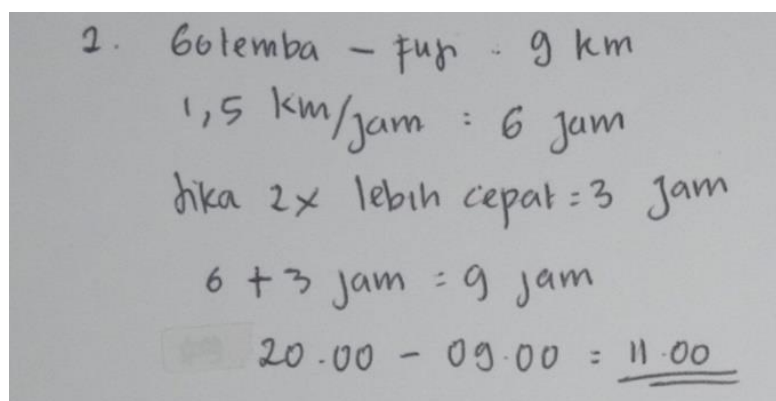 2. Gotemba - Fuji . 9 km
1,5 km/jam : 6 jam
Jika 2x lebih cepat = 3 jam
6 + 3 jam = 9 jam
20.00 - 09.00 = 11.00